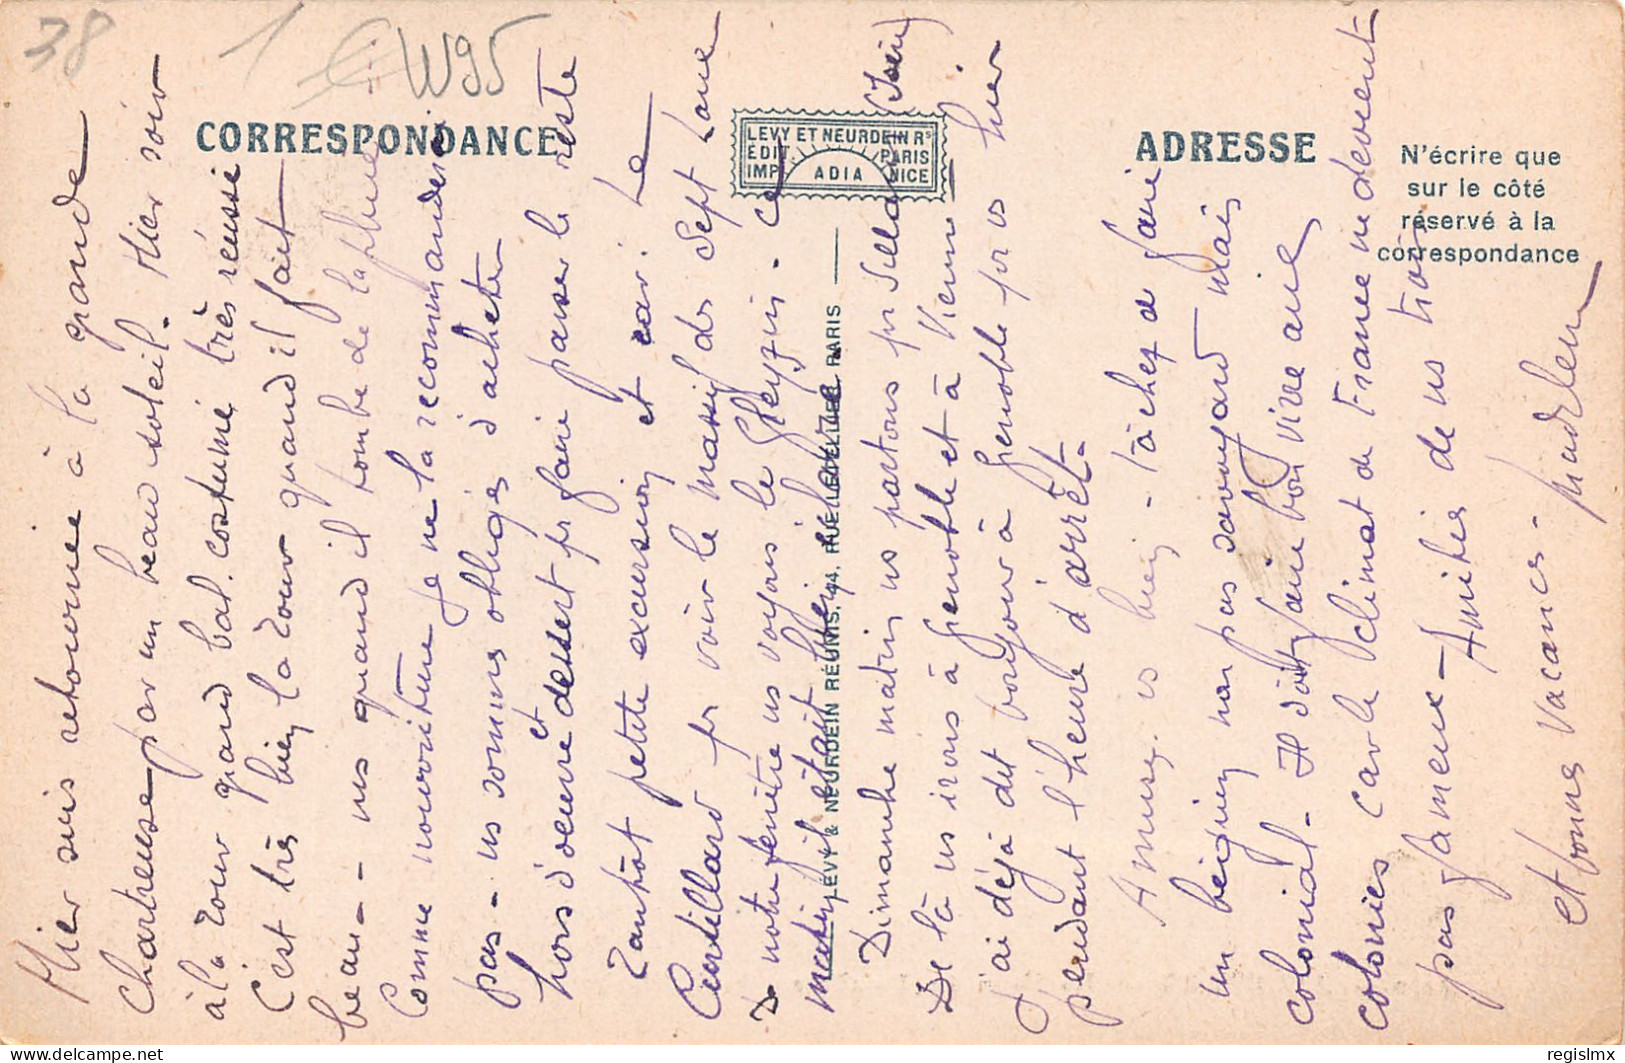 38 1 €W95
CORRESPONDANCE
LEVY ET NEURDEIN Rs
EDIT. PARIS
IMP. ADIA NICE
ADRESSE
N'écrire que
sur le côté
réservé à la
correspondance
LEVY & NEURDEIN RÉUNIS, 44, RUE LETELLIER, PARIS
Hier suis retournée à la grande
Chartreuse par un beau soleil. Hier soir
à la Tour grand bal costumé très réussi
C'est très bien la Tour quand il fait
beau - ns quand il tombe de la pluie
Comme nourriture je ne la recommanderai
pas - ns sommes obligés d'acheter
hors d'oeuvre et dessert pr faire passer le reste
Tantôt petite excursion et car. Le
Curtillard pr voir le massif des Sept Laux
D notre fenêtre ns voyons le Gleyzin - ce
matin il était bien
Dimanche matin ns partons pr (Isère)
De là ns irons à Grenoble et à Vienne
J'ai déjà dit bonjour à Grenoble pr vs hier
pendant l'heure d'arrêt -
Amusez vs bien - tâchez de faire
un béguin non pas savoyard mais
colonial - Il doit faire bon vivre aux
colonies car le climat de France devient
pas fameux - Amitiés de ns trois
et bonnes vacances - Madeleine
www.delcampe.net
regislmx